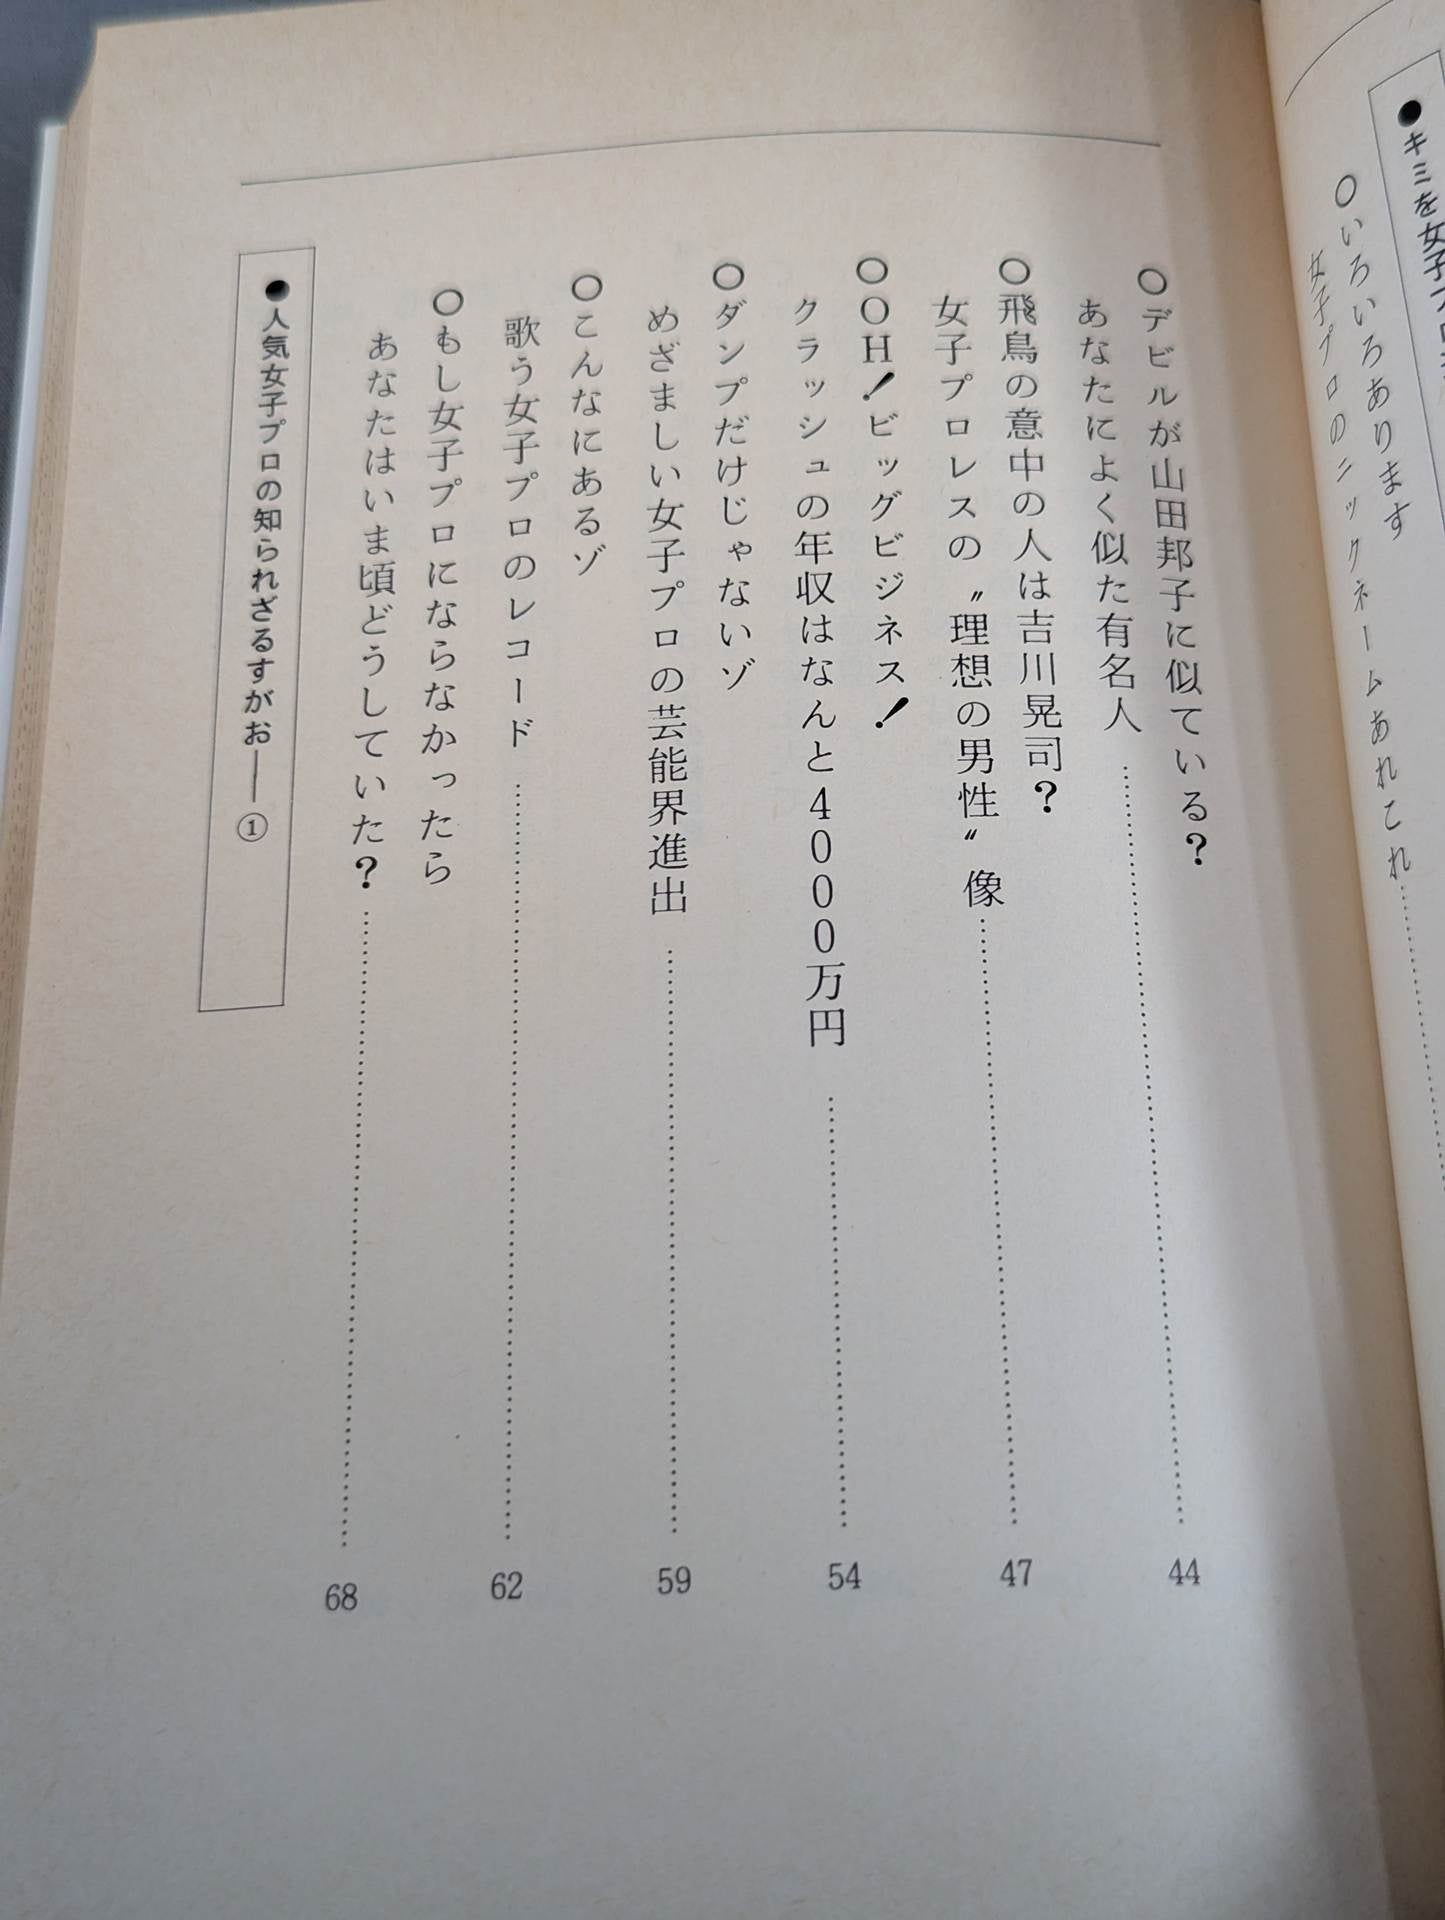 ●キミを女子プロ
○いろいろあります
女子プロのニックネームあれこれ
○デビルが山田邦子に似ている?
あなたによく似た有名人 44
○飛鳥の意中の人は吉川晃司?
女子プロレスの〝理想の男性〟像 47
○OH!ビッグビジネス!
クラッシュの年収はなんと4000万円 54
○ダンプだけじゃないゾ
めざましい女子プロの芸能界進出 59
○こんなにあるゾ
歌う女子プロのレコード 62
○もし女子プロにならなかったら
あなたはいま頃どうしていた? 68
●人気女子プロの知られざるすがお――①